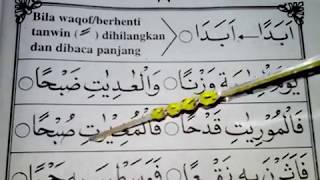 Bila waqof/berhenti
tanwin ( ـً ) dihilangkan
dan dibaca panjang
اَبَدًا ← اَبَدَا
وَزْنًا ○ وَالْعٰدِيٰتِ ضَبْحًا
فَالْمُوْرِيٰتِ قَدْحًا ○ صُبْحًا
فَاَثَرْنَ بِهٖ نَقْعًا ○ فَوَسَطْنَ بِهٖ جَمْعًا